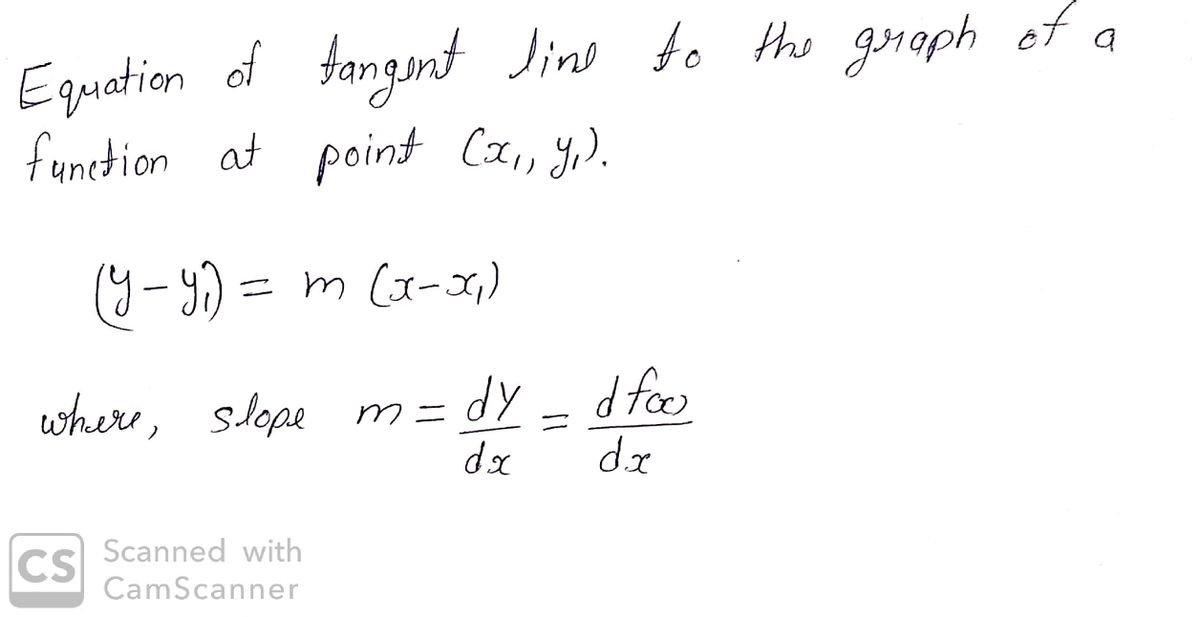 Equation of tangent line to the graph of a
function at point (x₁, y₁).
(y - y₁) = m (x - x₁)
where, slope m = dy/dx = d f(x)/dx
CS Scanned with
CamScanner